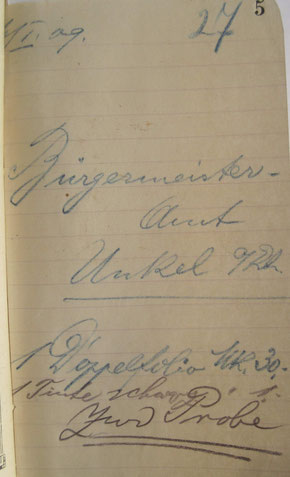 27 5
I. 09.
Bürgermeister-
Amt
Unkel a/Rh.
1 Doppelfolio Mk. 30.-
1 Tinte schwarz " 1.-
Zur Probe